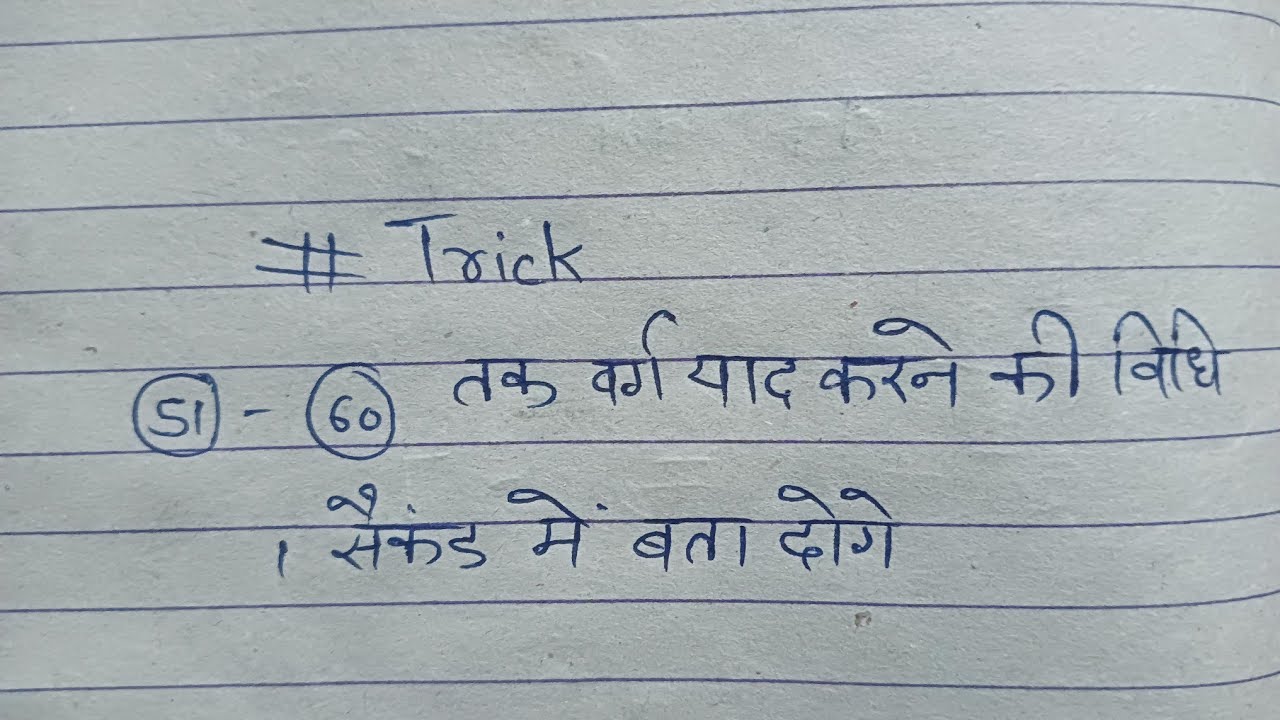 # Trick
51 - 60 तक वर्ग याद करने की विधि
1 सैकंड में बता दोगे